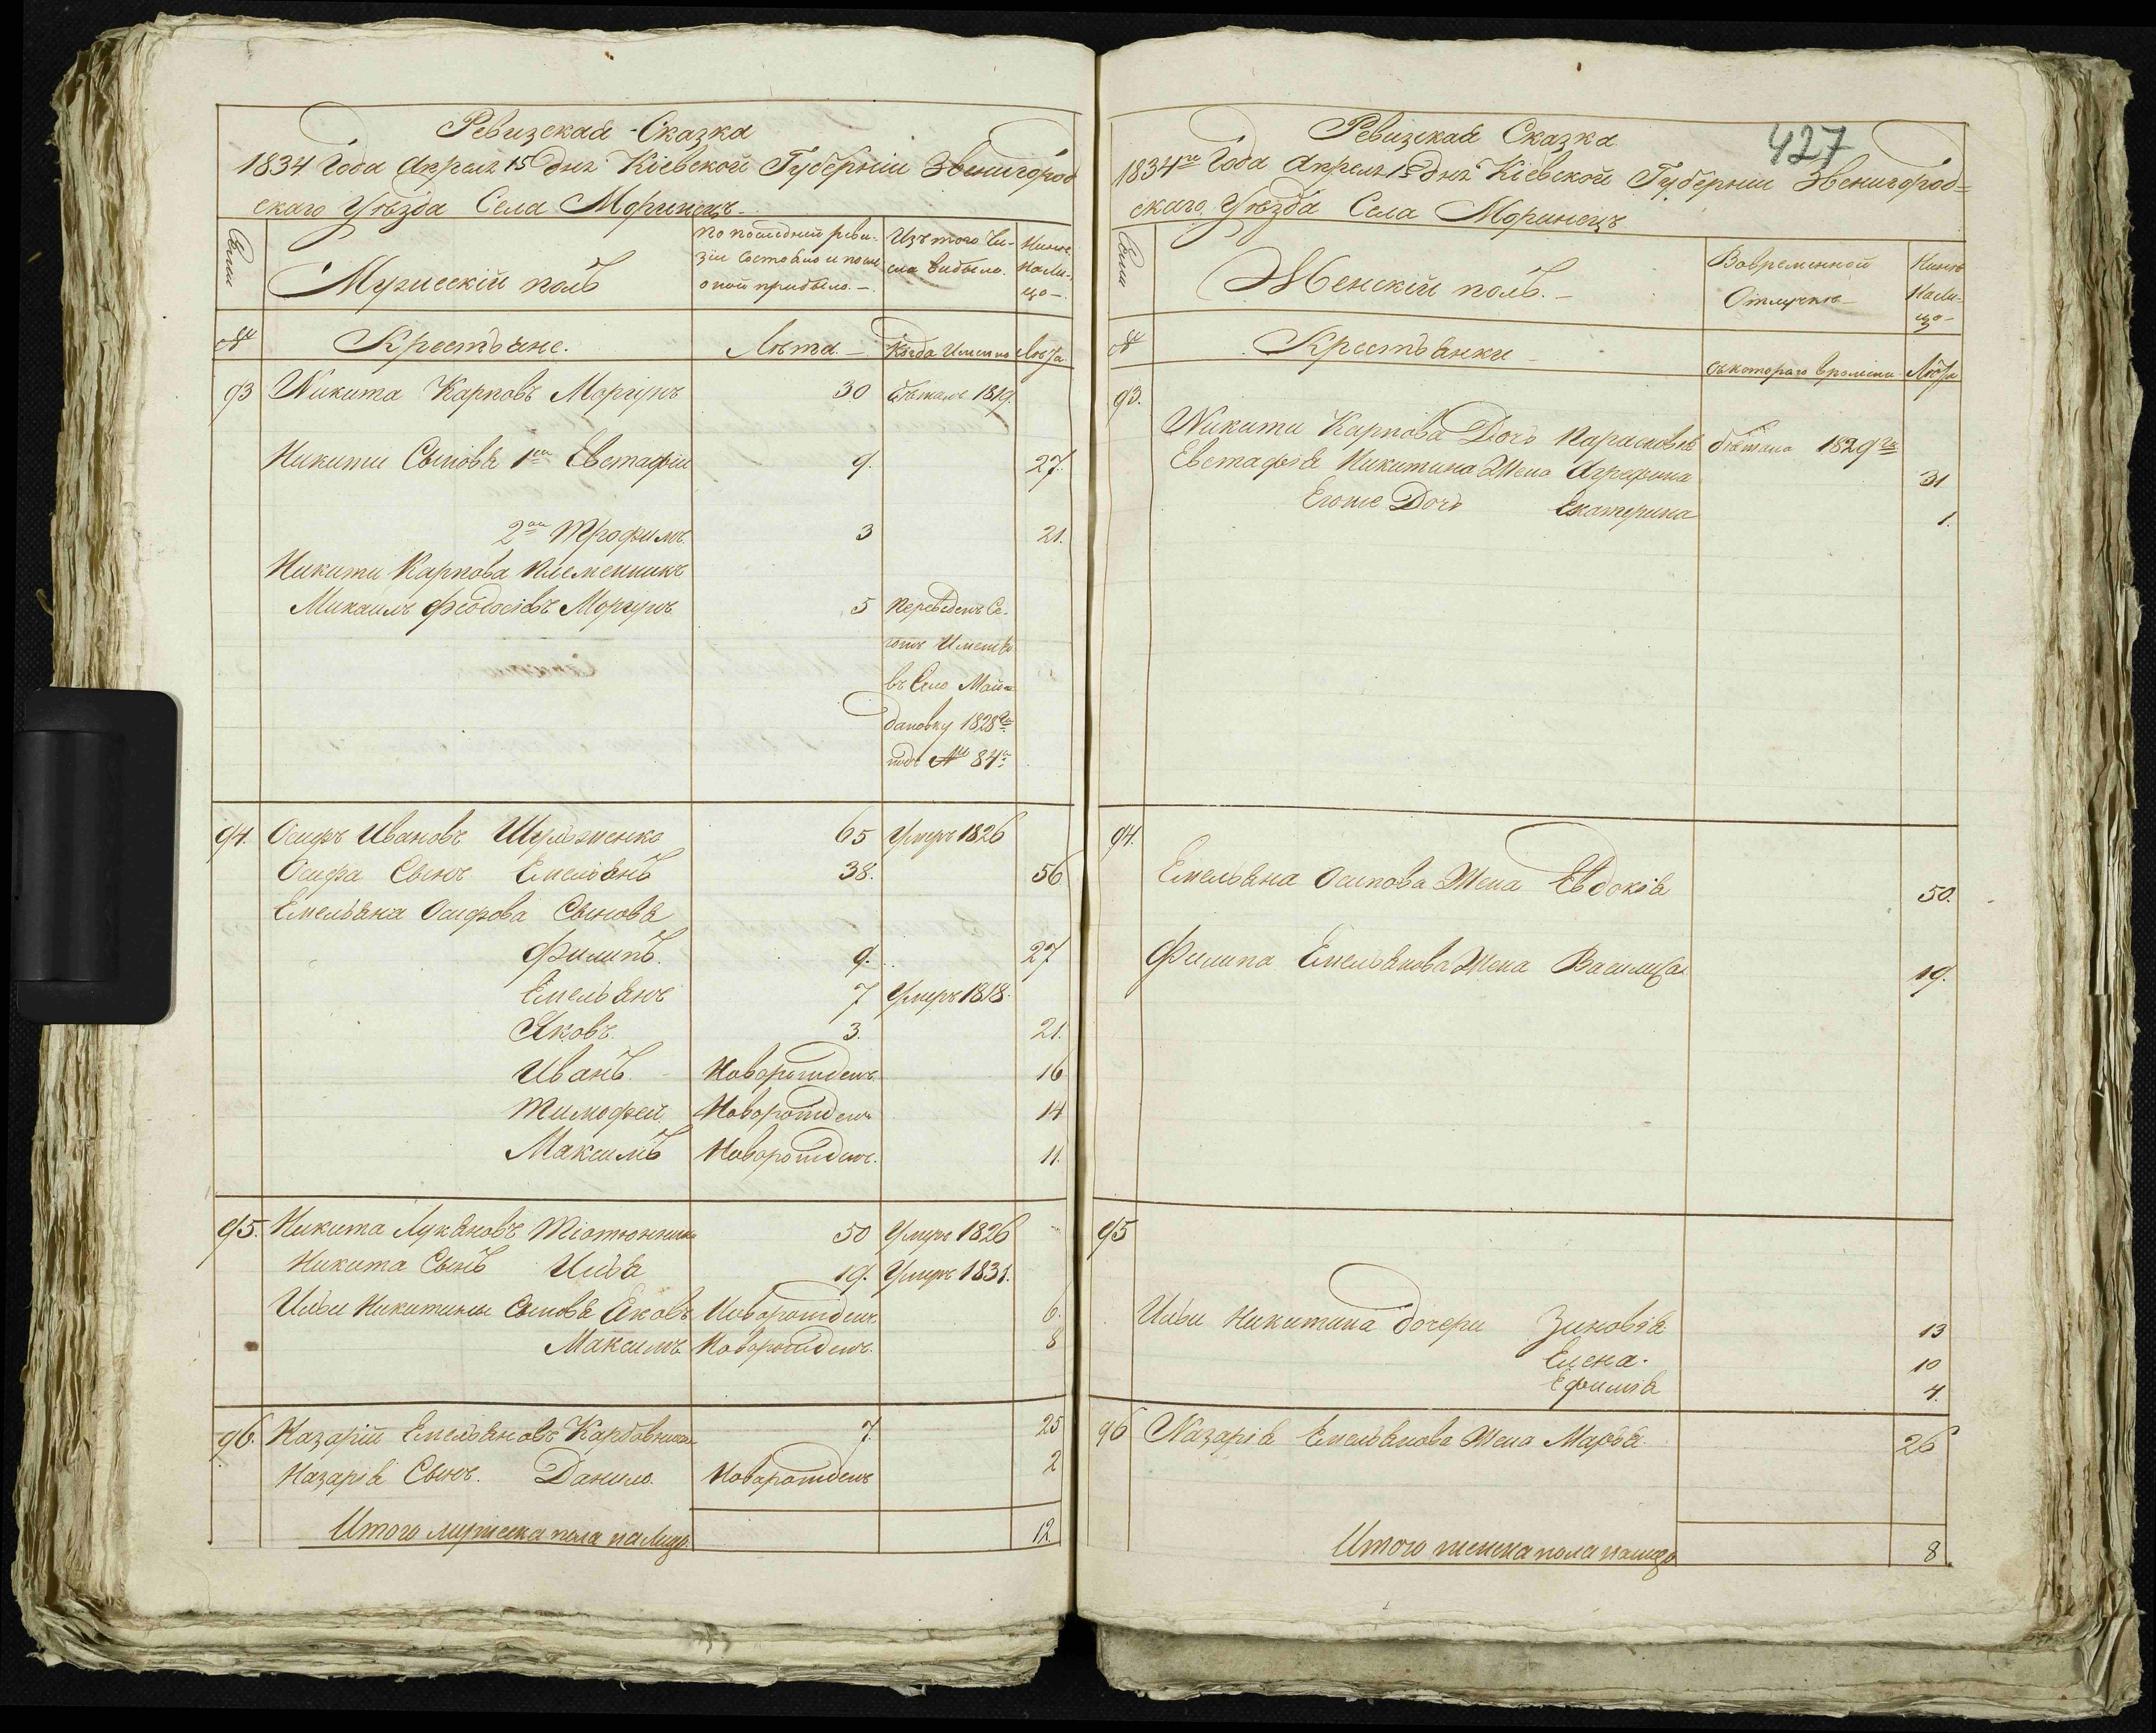 Ревизская Сказка
1834 Года Апреля 15 дня Кіевской Губерніи Звенигород
скаго Уѣзда Села Моринецъ
Семьи
Мужескій полъ
По последней реви-
зіи состояло и после
оной прибыло.
Изъ того чи-
сла выбыло.
Ныне
на ли-
цо
№
Крестьяне.
Лѣта.
Когда именно
Лѣта
93 Никита Карповъ Моргунъ 30 бѣжалъ 1819.
Никиты Сыновья 1й Евстафій 9. 27.
2й Трофимъ 3 21.
Никиты Карпова племенникъ
Михаилъ Феодосіевъ Моргунъ 5 переведенъ Се-
гожъ Именія
въ Село Май-
дановку 1828го
подъ № 84
94. Осифъ Ивановъ Шульженко 65 Умеръ 1826
Осифа Сынъ Емельянъ 38. 56
Емельяна Осифова Сыновья
Филипъ. 9. 27
Емельянъ 7 Умеръ 1818.
Яковъ. 3. 21.
Иванъ. Новорожденъ. 16
Тимофей Новорожденъ 14
Максимъ Новорожденъ. 11.
95. Никита Лукяновъ 50 Умеръ 1826
Никита Сынъ Илья 19. Умеръ 1831.
Ильи Никитины Сыновья Яковъ Новорожденъ. 6.
Максимъ Новорожденъ. 8
96. Назарій Емельяновъ 7. 25
Назарія Сынъ. Данило. Новорожденъ 2
Итого мужеска пола на лицо. 12
427
Ревизская Сказка
1834го Года Апреля 15 дня Кіевской Губерніи Звенигород=
скаго Уѣзда Села Моринецъ
Семьи
Женскій полъ.
Вовременной
Отлучке
Ныне
на ли-
цо
№
Крестьянки
съ котораго времени
Лѣта
93.
Никиты Карпова Дочь Парасковья бѣжала 1829го
Евстафія Никитина Жена Агрефина 31
Егоже Дочь Екатерина 1.
94.
Емельяна Осипова Жена Евдокія 50.
Филипа Емельянова Жена Василиса 19.
95
Ильи Никитина дочери Зиновія 13
Елена. 10
Ефимія 4.
96 Назарія Емельянова Жена Марья. 26
Итого женска пола налицо 8.